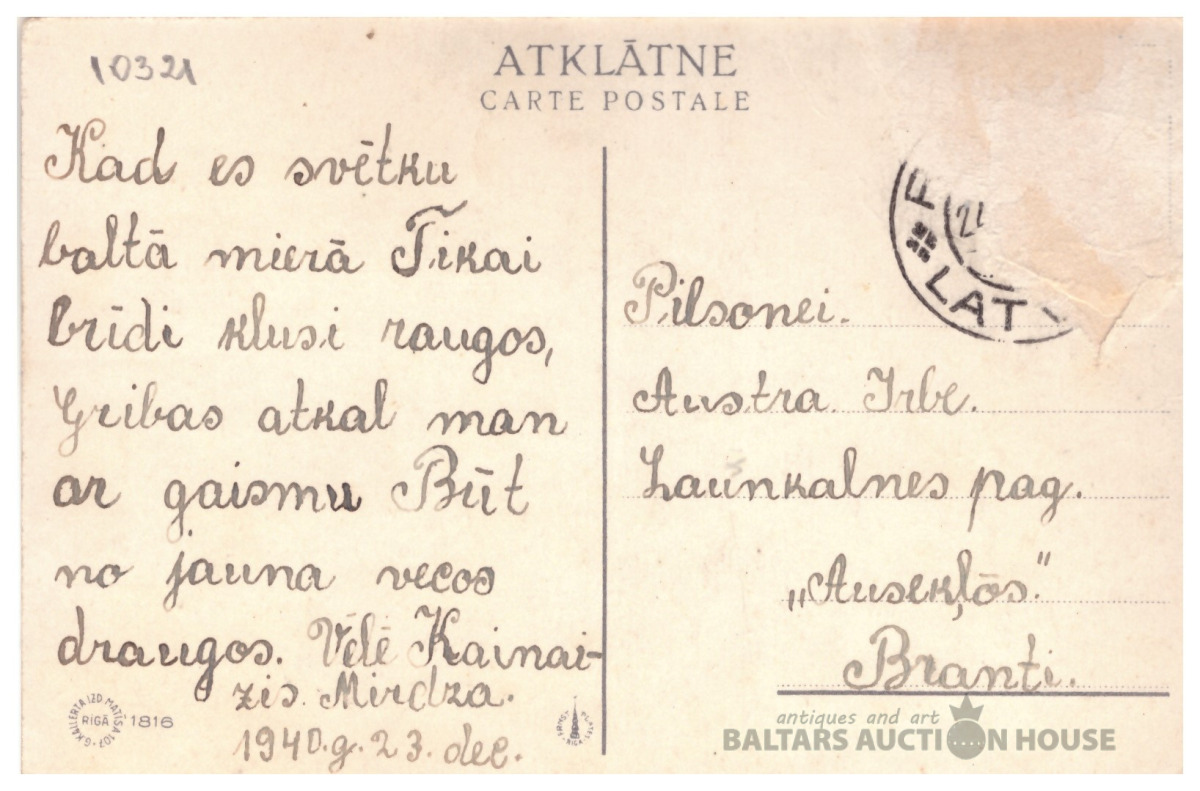 10321
ATKLĀTNE
CARTE POSTALE
Kad es svētku
baltā mierā Tikai
brīdi klusi raugos,
Gribas atkal man
ar gaismu Būt
no jauna vecos
draugos. Vēlē Kainai-
zis Mirdza.
1940.g. 23. dec.
G. KALLERTA IZD. MATĪSA 107
RĪGĀ
1816
LAT
Pilsonei.
Austra Irbe.
Launkalnes pag.
„Ausekļos."
Branti.
antiques and art
BALTARS AUCTION HOUSE